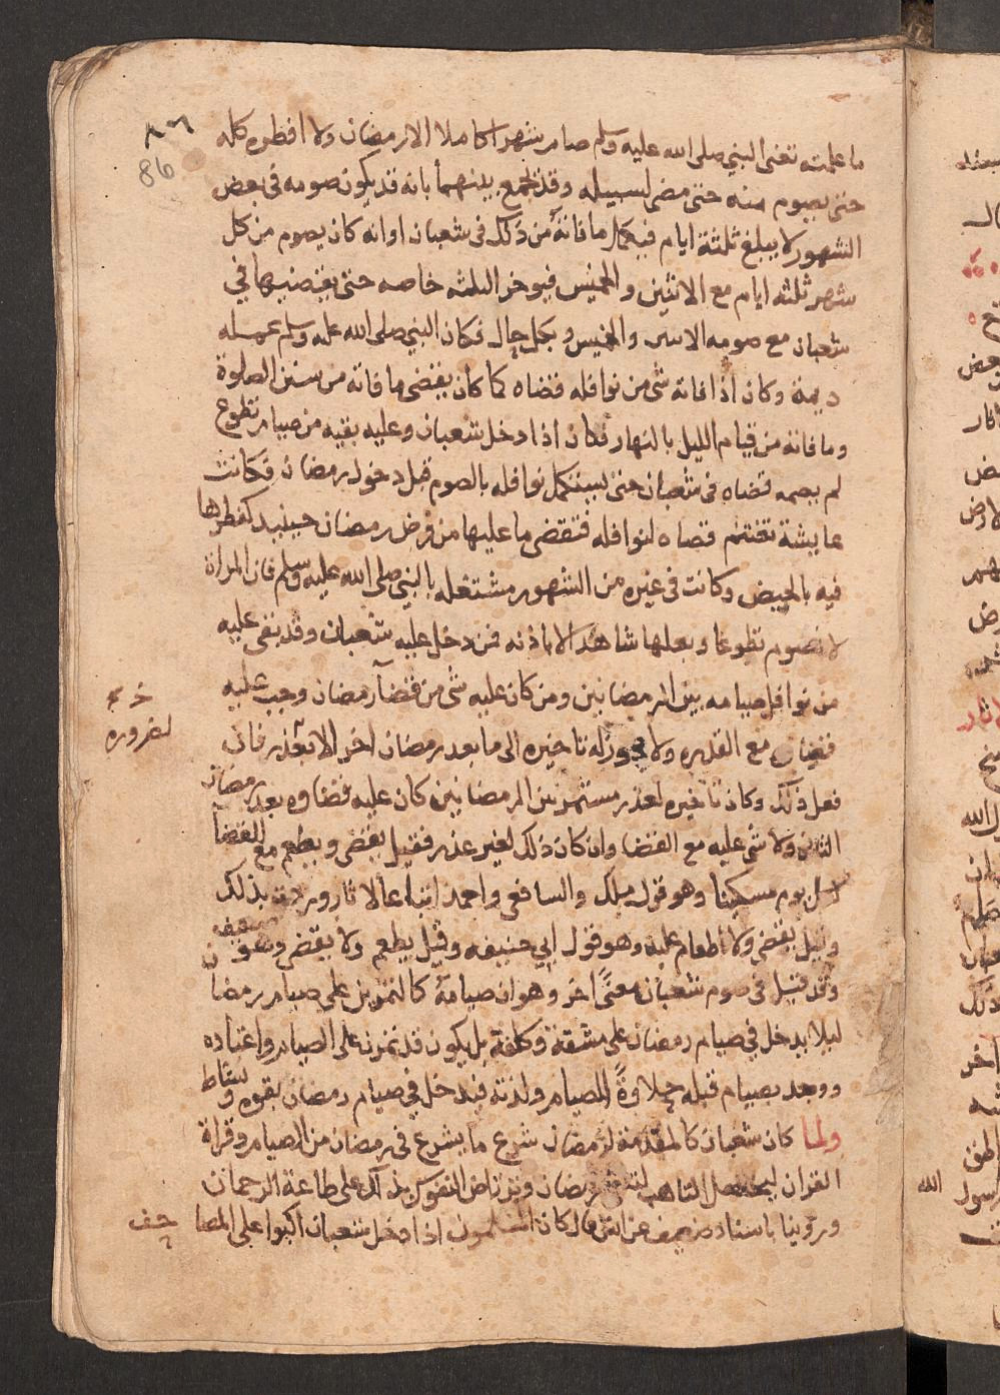 ٨٦
86
ما علمته تعنى النبي صلى الله عليه وسلم صام شهرا كاملا الا رمضان ولا افطره كله
حتى يصوم منه حتى مضى لسبيله وقد يجمع بينهما بانه قد يكون صومه في بعض
الشهور لا يبلغ ثلثة ايام فيكمل ما فاته من ذلك في شعبان او انه كان يصوم من كل
شهر ثلثه ايام مع الاثنين والخميس فيوخر الثلثه خاصه حتى يقضيها في
شعبان مع صومه الاثنين والخميس وبكل حال فكان النبي صلى الله عليه وسلم عمله
ديمة وكان اذا فاته شى من نوافله قضاه كما كان يقضى ما فاته من سنن الصلوة
وما فاته من قيام الليل بالنهار فكان اذا دخل شعبان وعليه بقيه من صيام تطوع
لم يصمه قضاه في شعبان حتى يستكمل نوافله بالصوم قبل دخول رمضان فكانت
عايشة تغتنم قضاه لنوافله فتقضى ما عليها من فرض رمضان حينيد لفطرها
فيه بالحيض وكانت في غيره من الشهور مشتغله بالنبي صلى الله عليه وسلم فان المراة
لا تصوم تطوعا وبعلها شاهد الا باذنه فمن دخل عليه شعبان وقد بقى عليه
من نوافل صيامه بين الرمضانين ومن كان عليه شى من قضآ رمضان وجب عليه
قضاه مع القدره ولا يجوز له تاخيره الى ما بعد رمضان اخر الا لعذر فان
لضروره
فعل ذلك وكان تاخيره لعذر مستمر بين الرمضانين كان عليه قضاوه بعد رمضان
الثانى ولا شى عليه مع القضا وان كان ذلك لغير عذر فقيل يقضى ويطعم مع القضآ
لكل يوم مسكينا وهو قول ملك والشافعي واحمد اتباعا لاثار وردت بذلك
وقيل يقضى ولا اطعام عليه وهو قول ابي حنيفه وقيل يطعم ولا يقضى وهو ضعيف
وقد قيل في صوم شعبان معنًى اخر وهو ان صيامه كالتمرين على صيام رمضان
ليلا يدخل في صيام رمضان على مشقة وكلفة بل يكون قد تمرن على الصيام واعتاده
ووجد بصيام قبله حلاوةً الصيام ولذته فيدخل في صيام رمضان بقوه ونشاط
ولما كان شعبان كالمقدمة لرمضان شرع ما يشرع في رمضان من الصيام وقراة
القران ليحصل التاهب رمضان وترتاض النفوس بذلك على طاعة الرحمان
وروينا باسناد ضعيف عن انس قال كان المسلمون اذا دخل شعبان اكبوا على المصا
حف